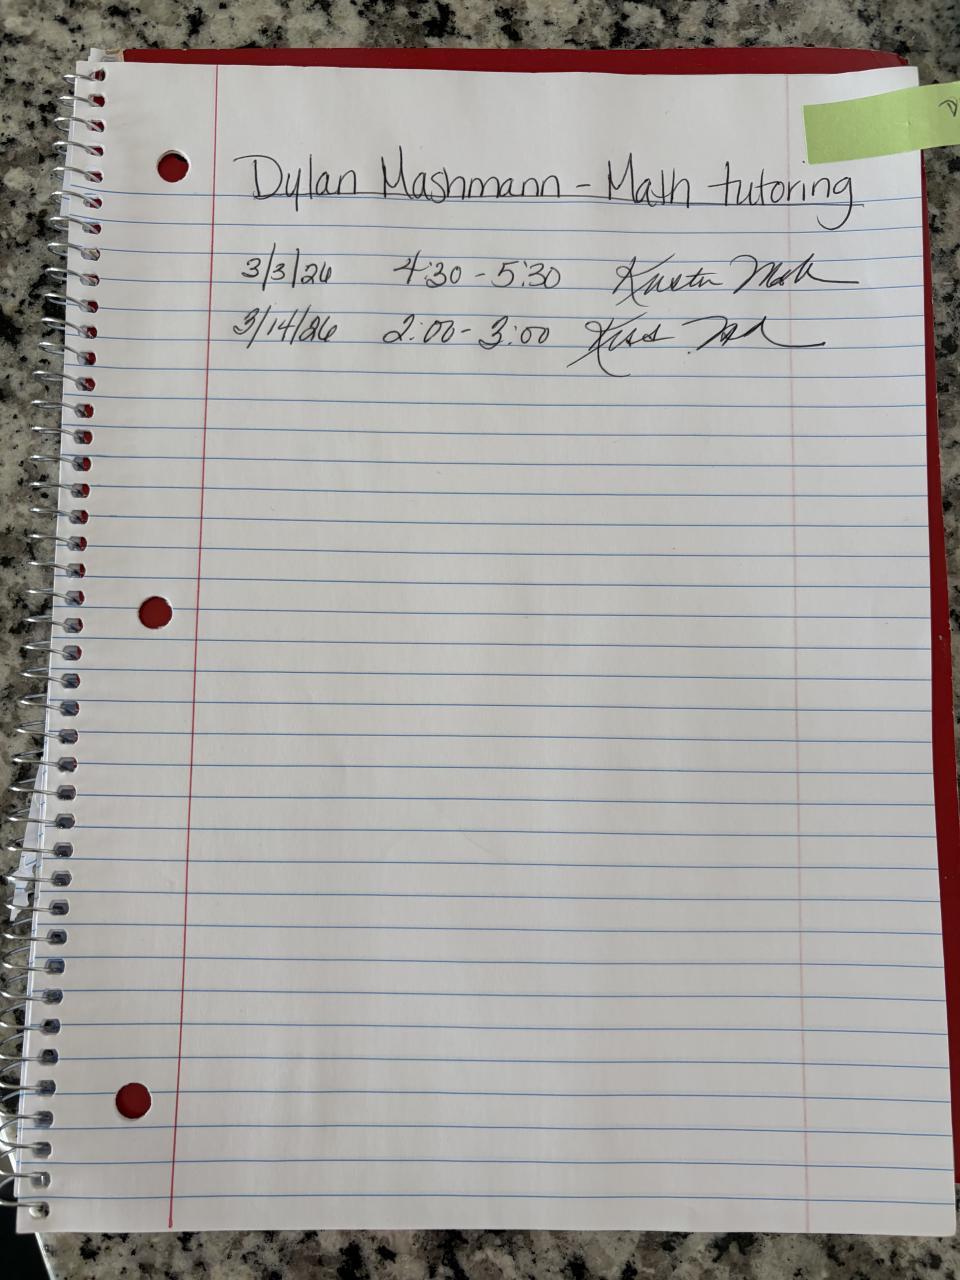 Dylan Mashmann - Math tutoring
3/3/26 4:30 - 5:30
3/14/26 2:00 - 3:00